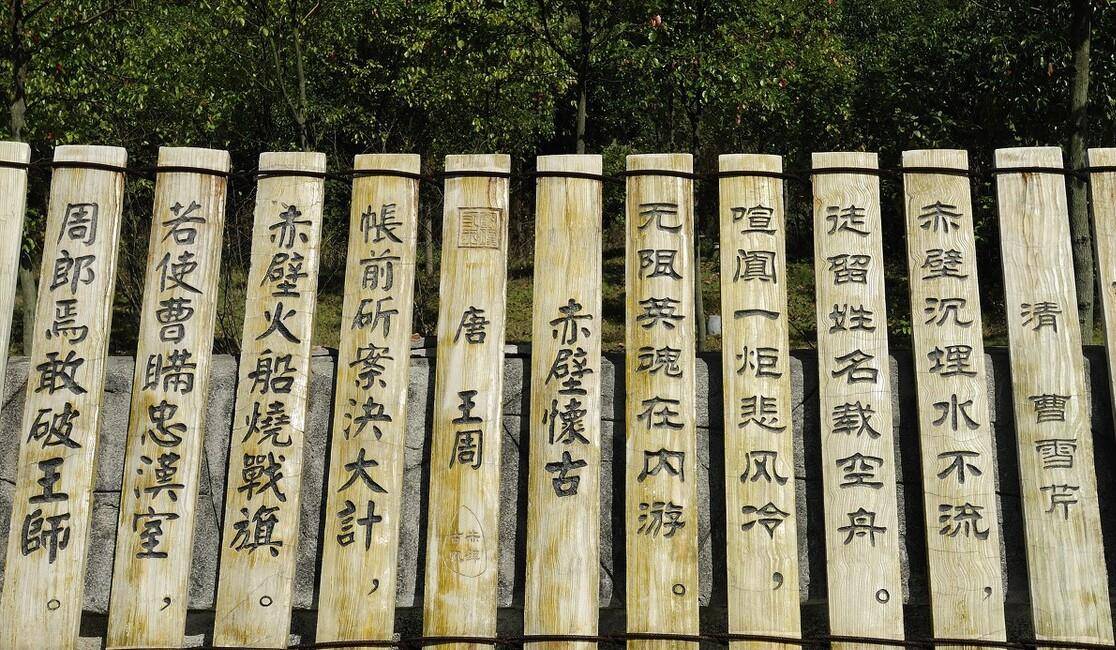 清 曹雪芹
赤壁沉埋水不流，
徒留姓名载空舟。
喧阗一炬悲风冷，
无阻英魂在内游。
赤壁懷古
唐 王周
帳前斫案決大計，
赤壁火船燒戰旗。
若使曹瞞忠漢室，
周郎焉敢破王師。